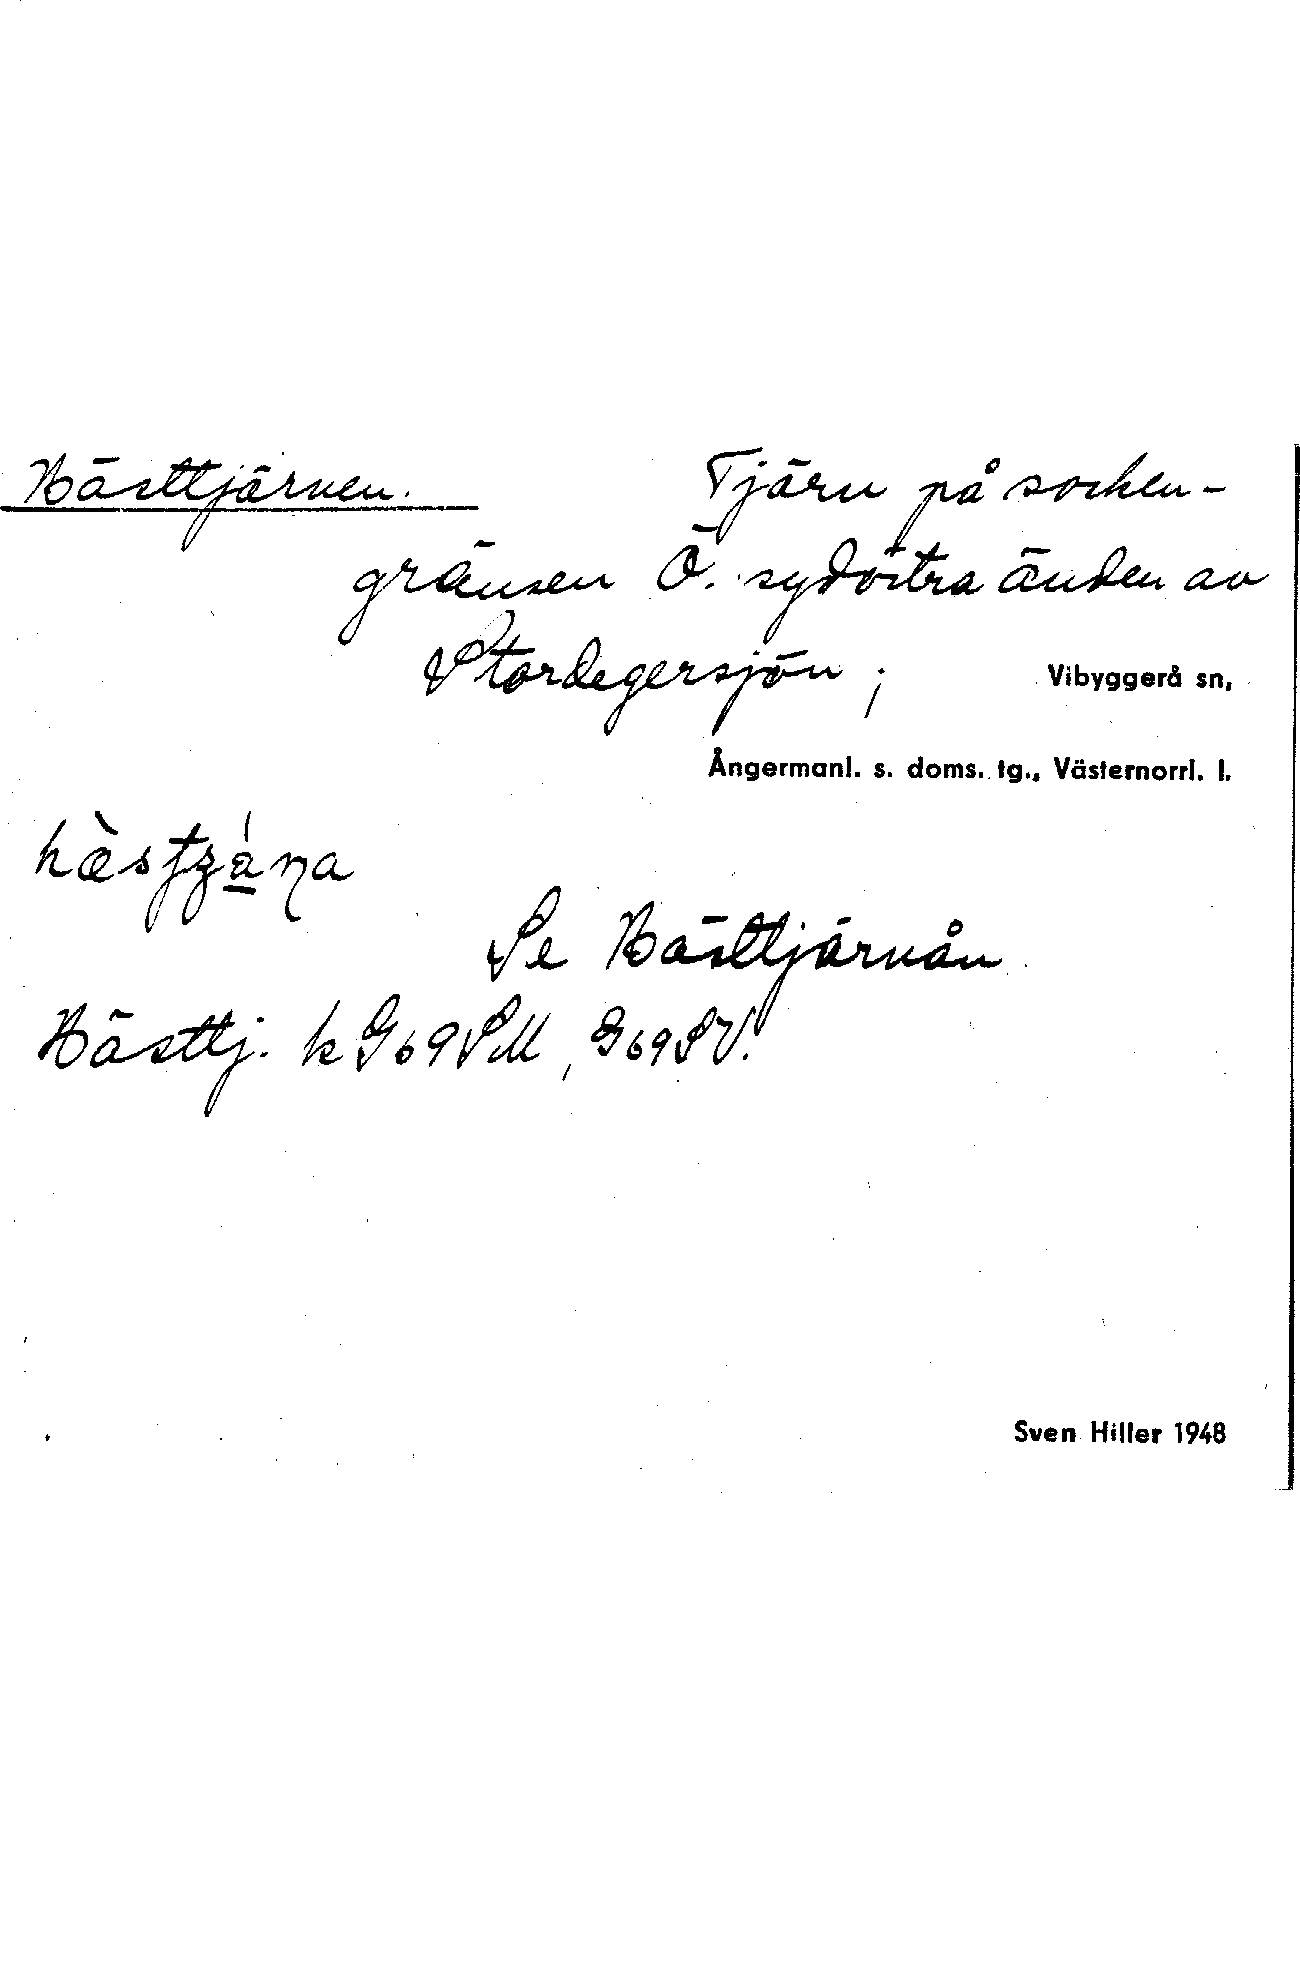 Hästtjärnen.
Tjärn på socken-
gränsen Ö. sydöstra änden av
Stordegersjön;
Vibyggerå sn,
Ångermanl. s. doms. tg., Västernorrl. l.
Se Hästtjärnån
Hästtj. k G69SM, G69SV.
Sven Hiller 1948